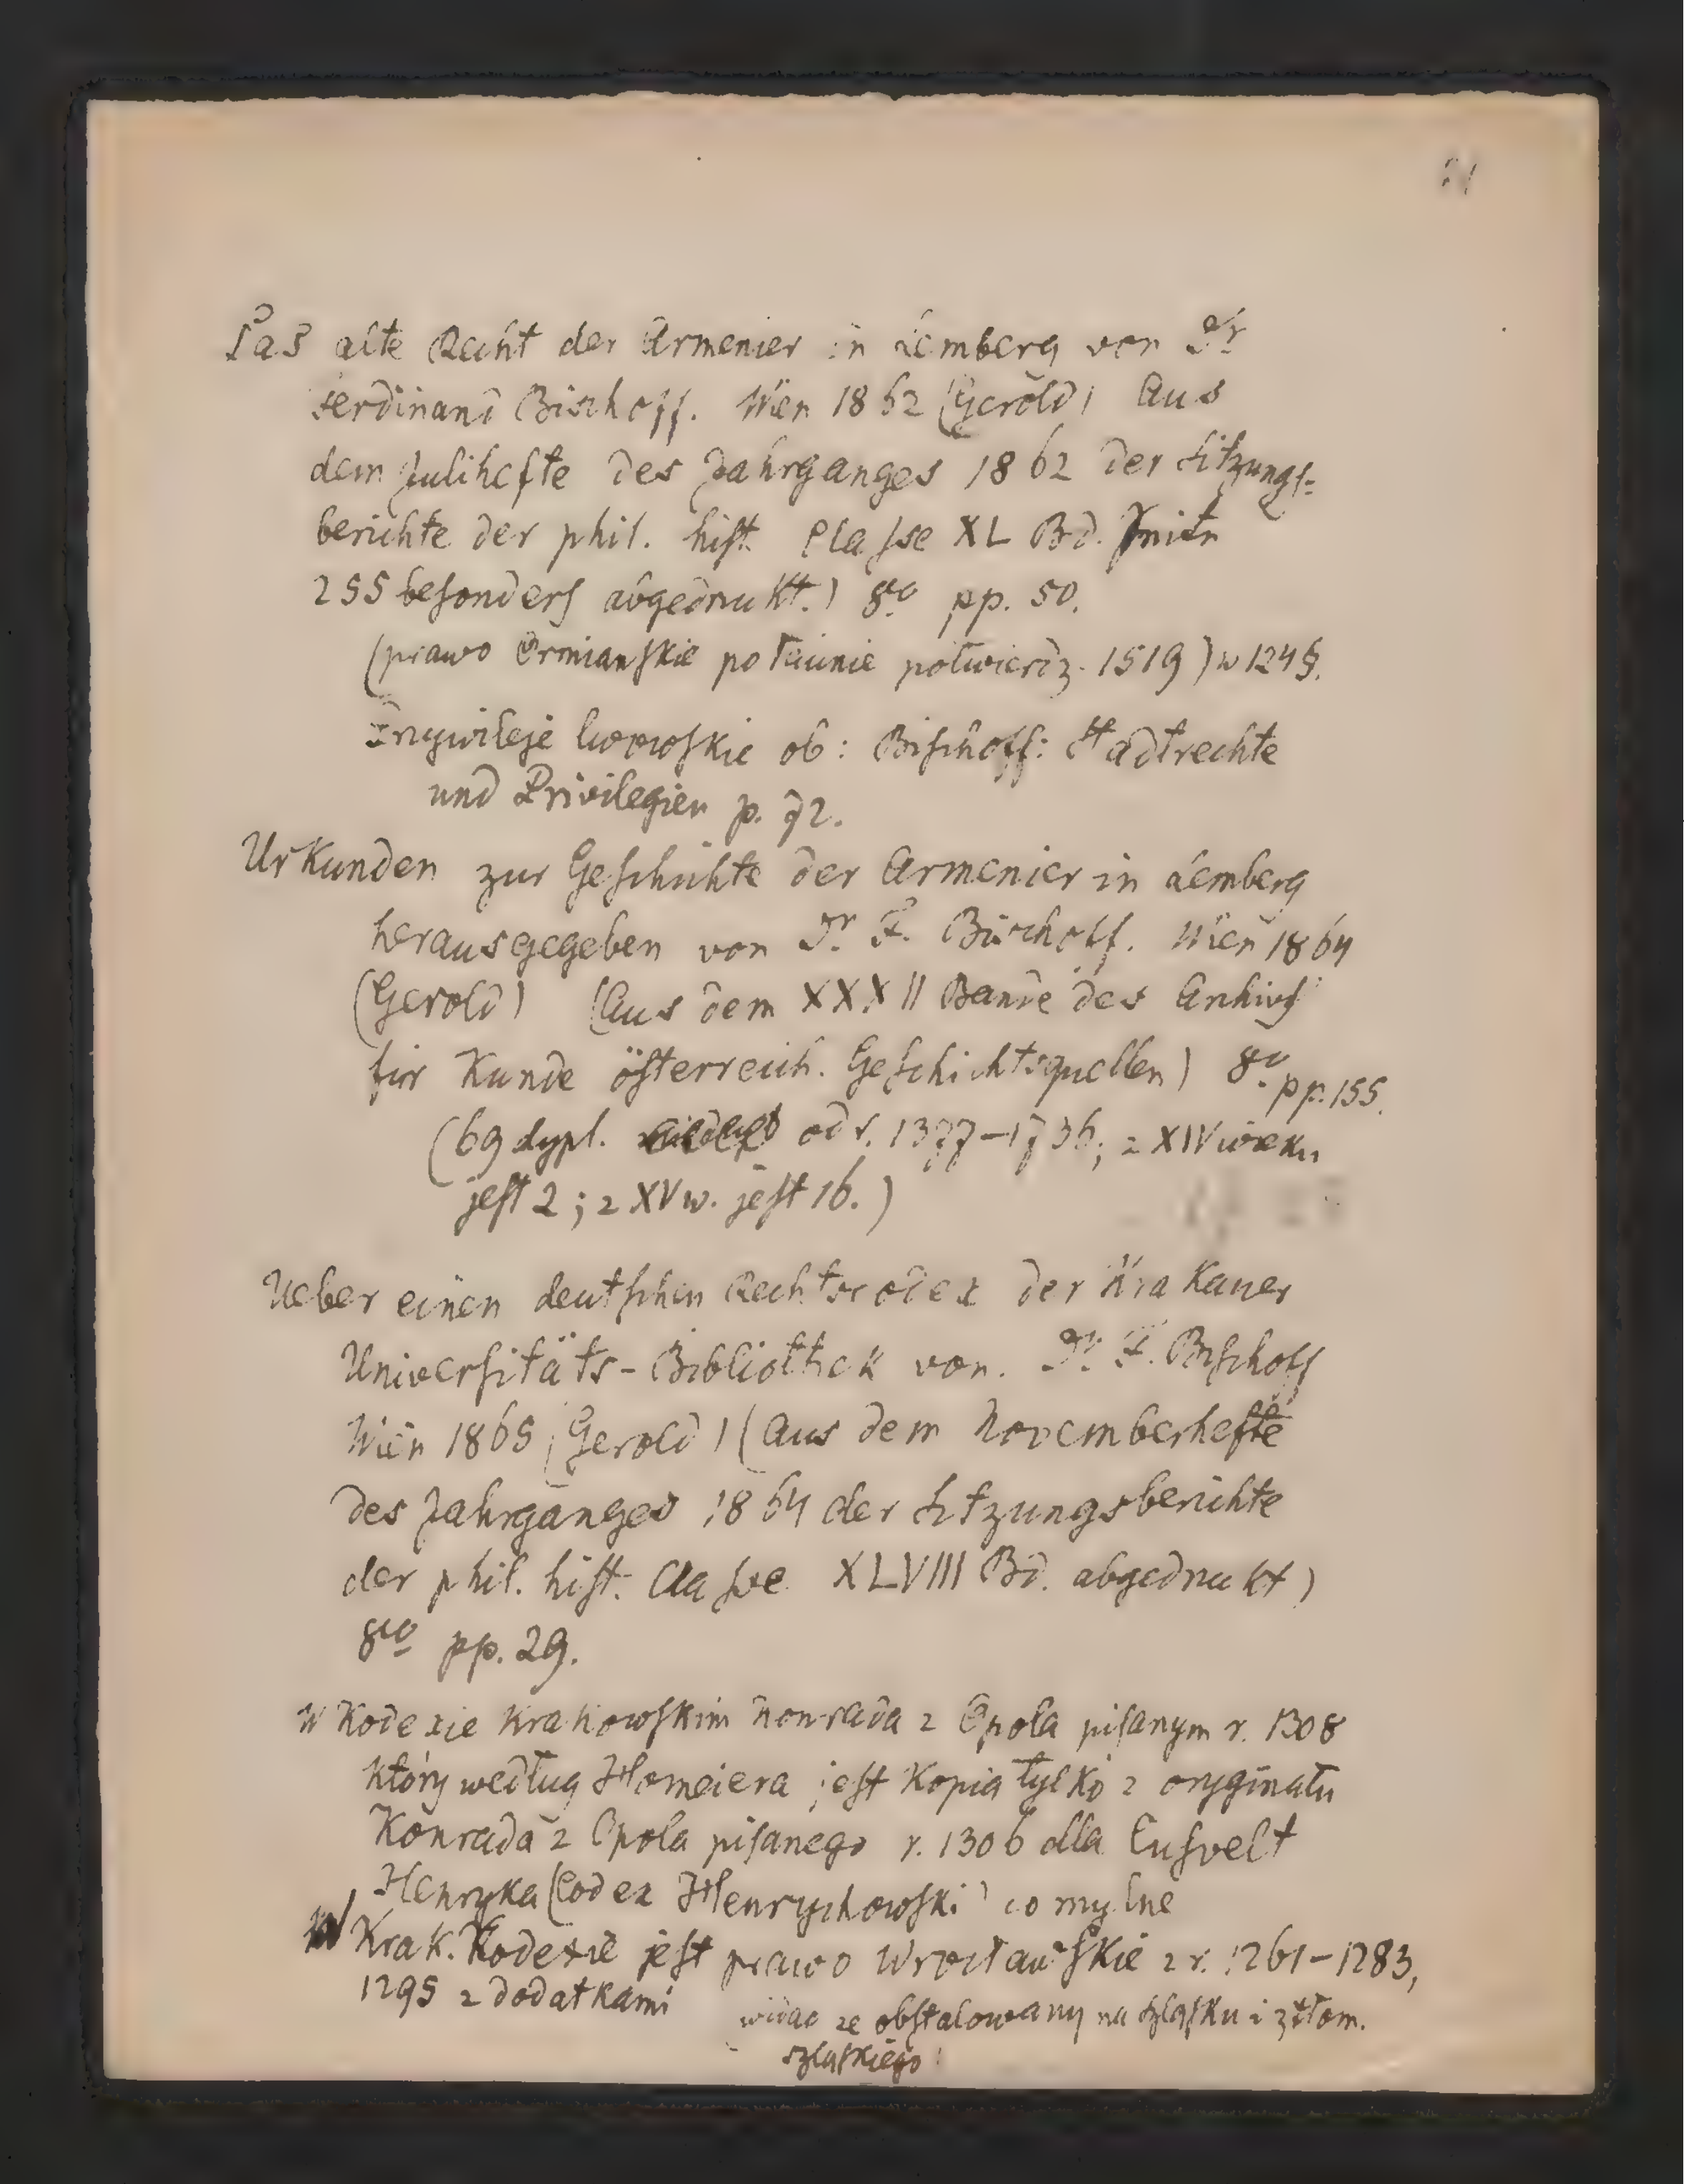 21
Das alte Recht der Armenier in Lemberg von Dr
Ferdinand Bischoff. Wien 1862 (Gerold) Aus
dem Julihefte des Jahrganges 1862 der Sitzungs=
berichte der phil. hist. Classe XL Bd.
255 besonders abgedruckt.) 8vo pp. 50.
(prawo Ormianskie po łacinie potwierdz. 1519) w 124 §.
Przywileje lwowskie ob: Bischoff: Stadtrechte
und Privilegien p. 72.
Urkunden zur Geschichte der Armenier in Lemberg
herausgegeben von Dr. F. Bischoff. Wien 1864
(Gerold) (Aus dem XXXII Bande des Archivs
für Kunde österreich. Geschichtsquellen) 8o pp. 155.
(69 dypl. od r. 1377–1736; z XIV wieku
jest 2; z XV w. jest 16.)
Ueber einen deutschen Rechtscodex der Krakauer
Universitäts-Bibliothek von. Dr. F. Bischoff
Wien 1865 (Gerold) (Aus dem Novemberhefte
des Jahrganges 1864 der Sitzungsberichte
der phil. hist. Classe XLVIII Bd. abgedruckt)
8vo pp. 29.
W Kodexie Krakowskim Konrada z Opola pisanym r. 1308
który według Homeiera jest Kopią tylko z oryginału
Konrada z Opola pisanego r. 1306 dla
Henryka (Codex Henrychowski) co mylne
W Krak. Kodexie jest prawo Wrocławskie z r. 1261–1283,
1295 z dodatkami widac ze obstalowany na Szląsku i z tłom.
szląskiego